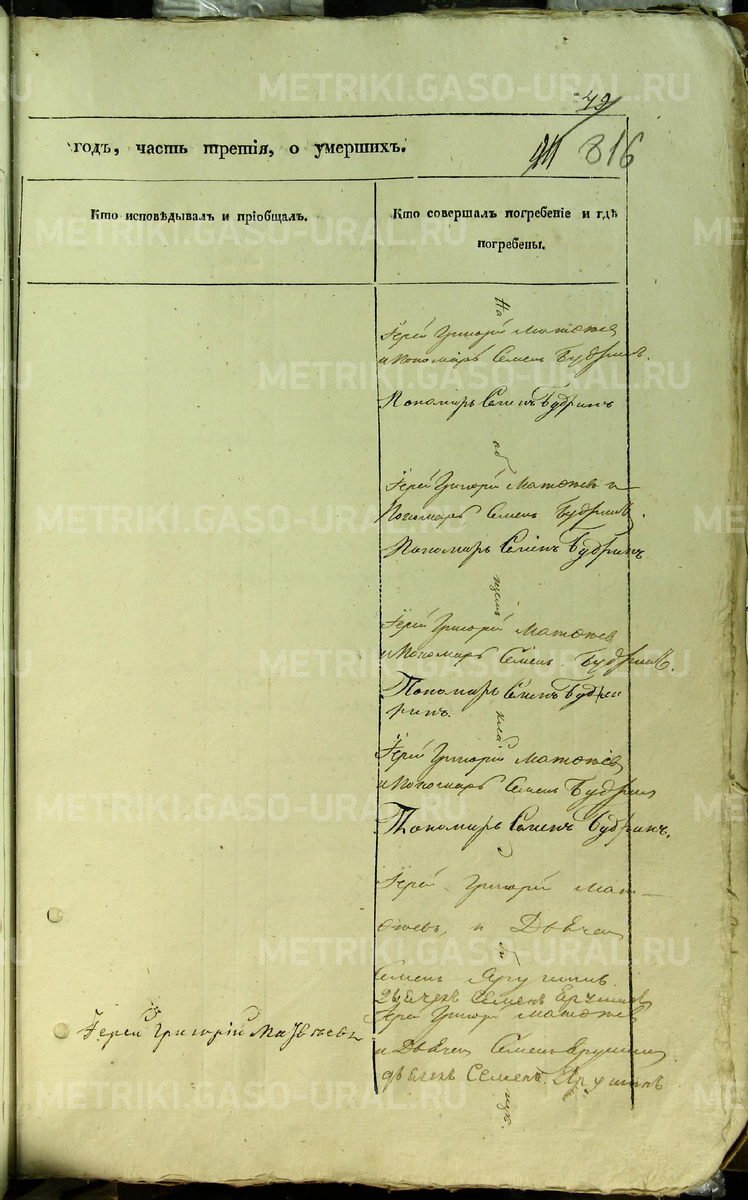 METRIKI.GASO-URAL.RU
49
годъ, часть третія, о умершихъ.
816
Кто исповѣдывалъ и пріобщалъ.
Кто совершалъ погребеніе и гдѣ
погребены.
На
Іерей Григорій Матѳеев
и Пономарь Семенъ Будринъ.
Пономарь Семенъ Будринъ
об
Іерей Григорій Матѳеевъ и
Пономарь Семенъ Будринъ.
Пономарь Семенъ Будринъ
щемъ
Іерей Григорій Матѳеев
и Пономарь Семенъ Будринъ.
Пономарь Семенъ Будри
ринъ.
клад
Іерей Григорій Матѳеев
и Пономарь Семенъ Будрин
Пономарь Семенъ Будринъ.
Іерей Григорій Мат-
ѳеевъ, и Дьячек
би
Семенъ
дьячекъ Семенъ
Іерей Григорій Матѳеев
Іерей Григорій Матвѣевъ
и Дьячек Семенъ Ярушин
дьячекъ Семенъ Ярушинъ
щѣ.